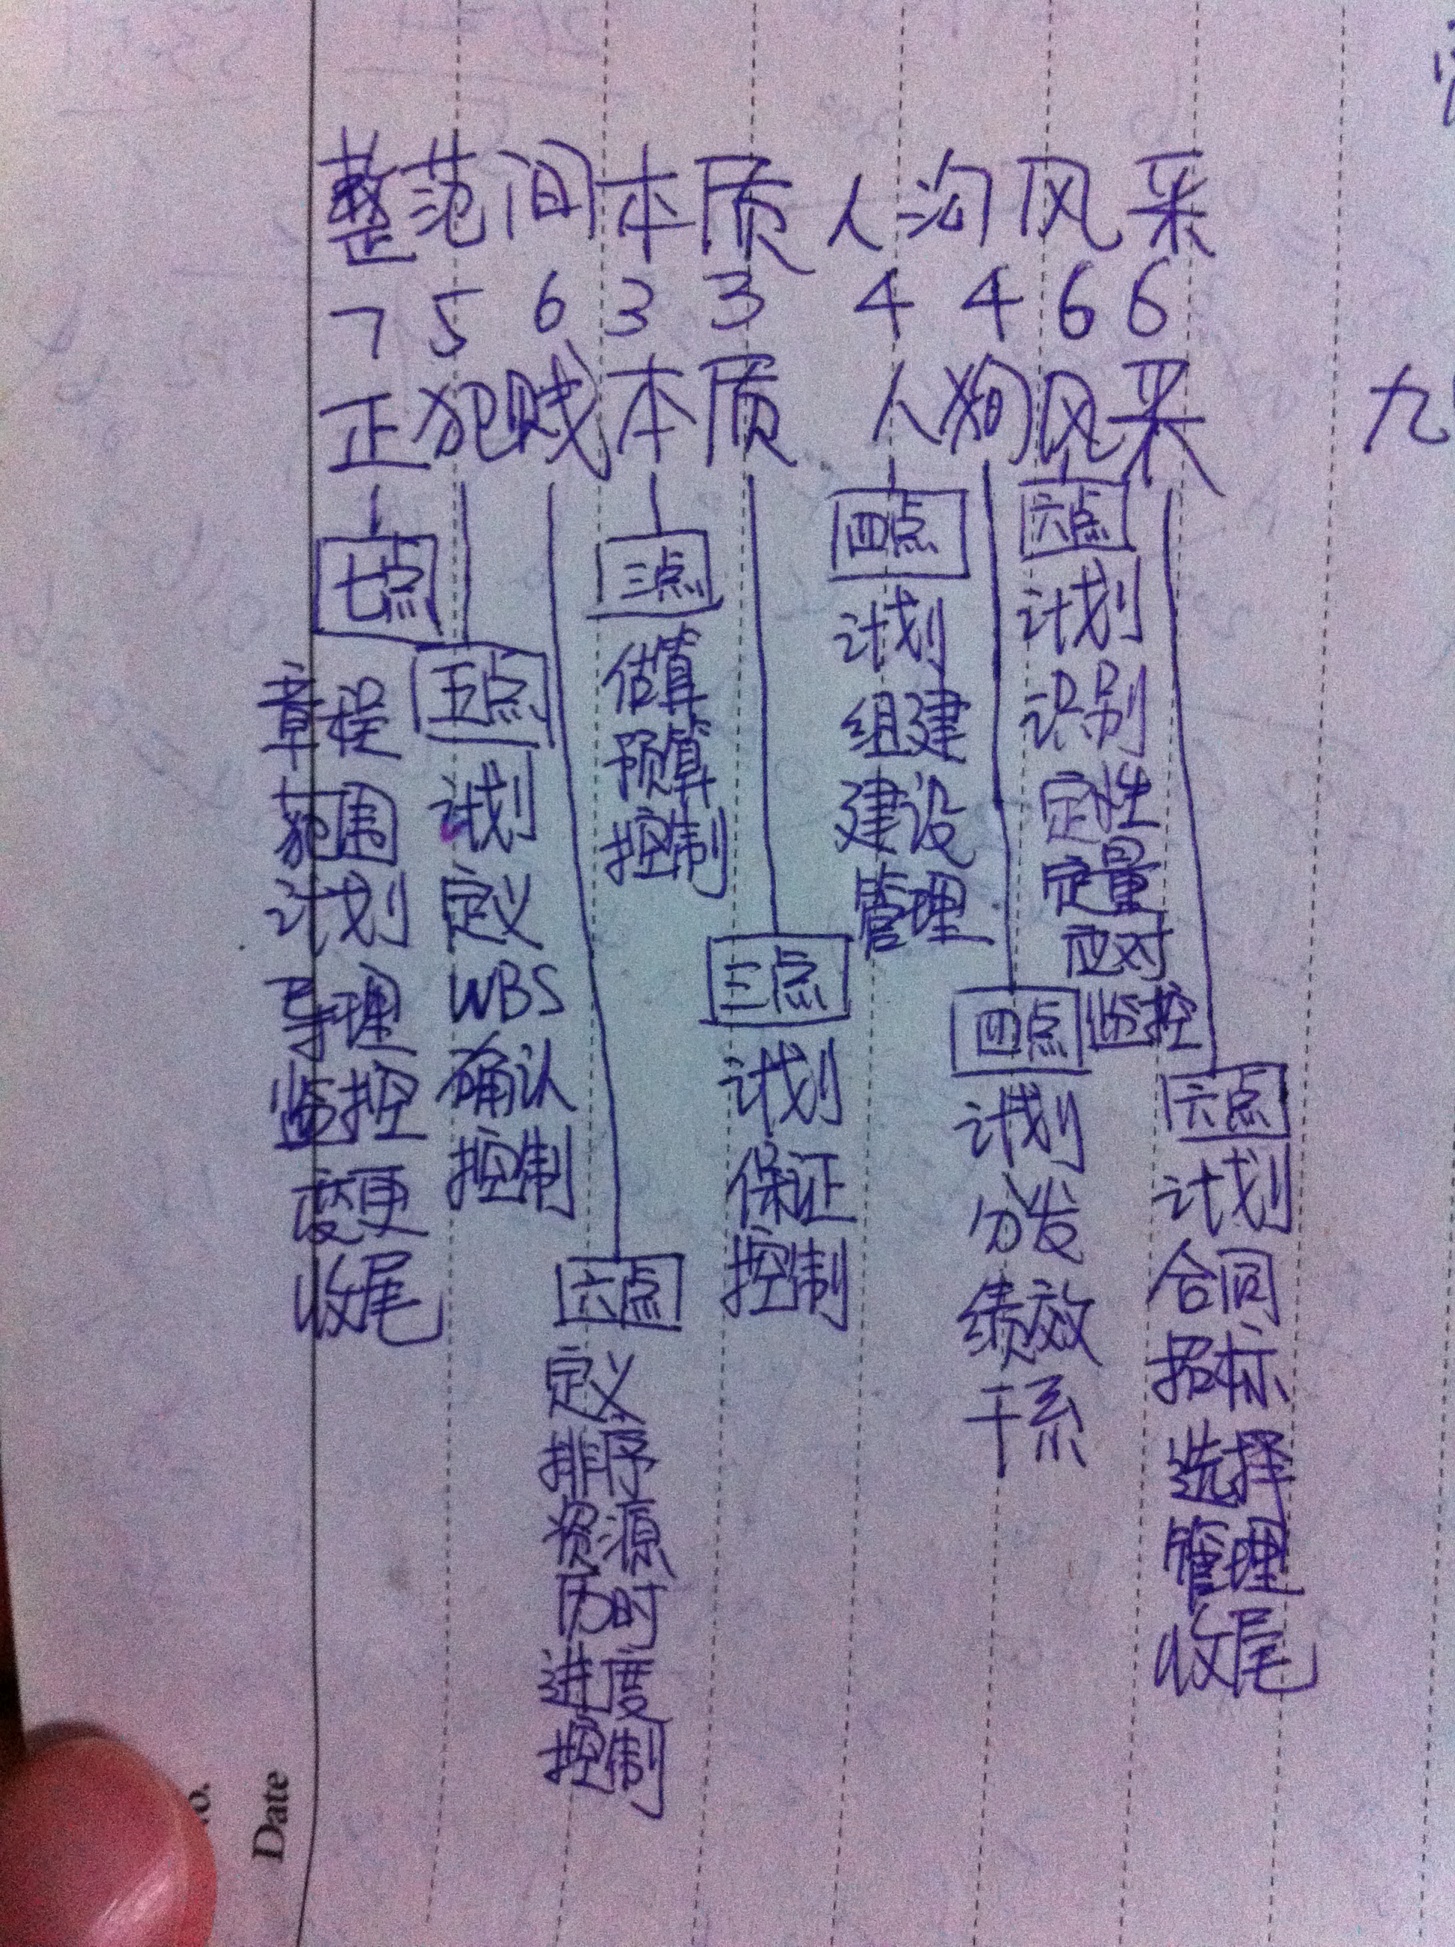 整范间本质人沟风采
7 5 6 3 3 4 4 6 6
正犯贱本质 人狗风采
九
七点
章程
范围
计划
导理
监控
变更
收尾
五点
计划
定义
WBS
确认
控制
六点
定义
排序
资源
历时
进度
控制
三点
估算
预算
控制
三点
计划
保证
控制
四点
计划
组建
建设
管理
四点
计划
分发
绩效
干系
六点
计划
识别
定性
定量
应对
监控
六点
计划
合同
招标
选择
管理
收尾
Date